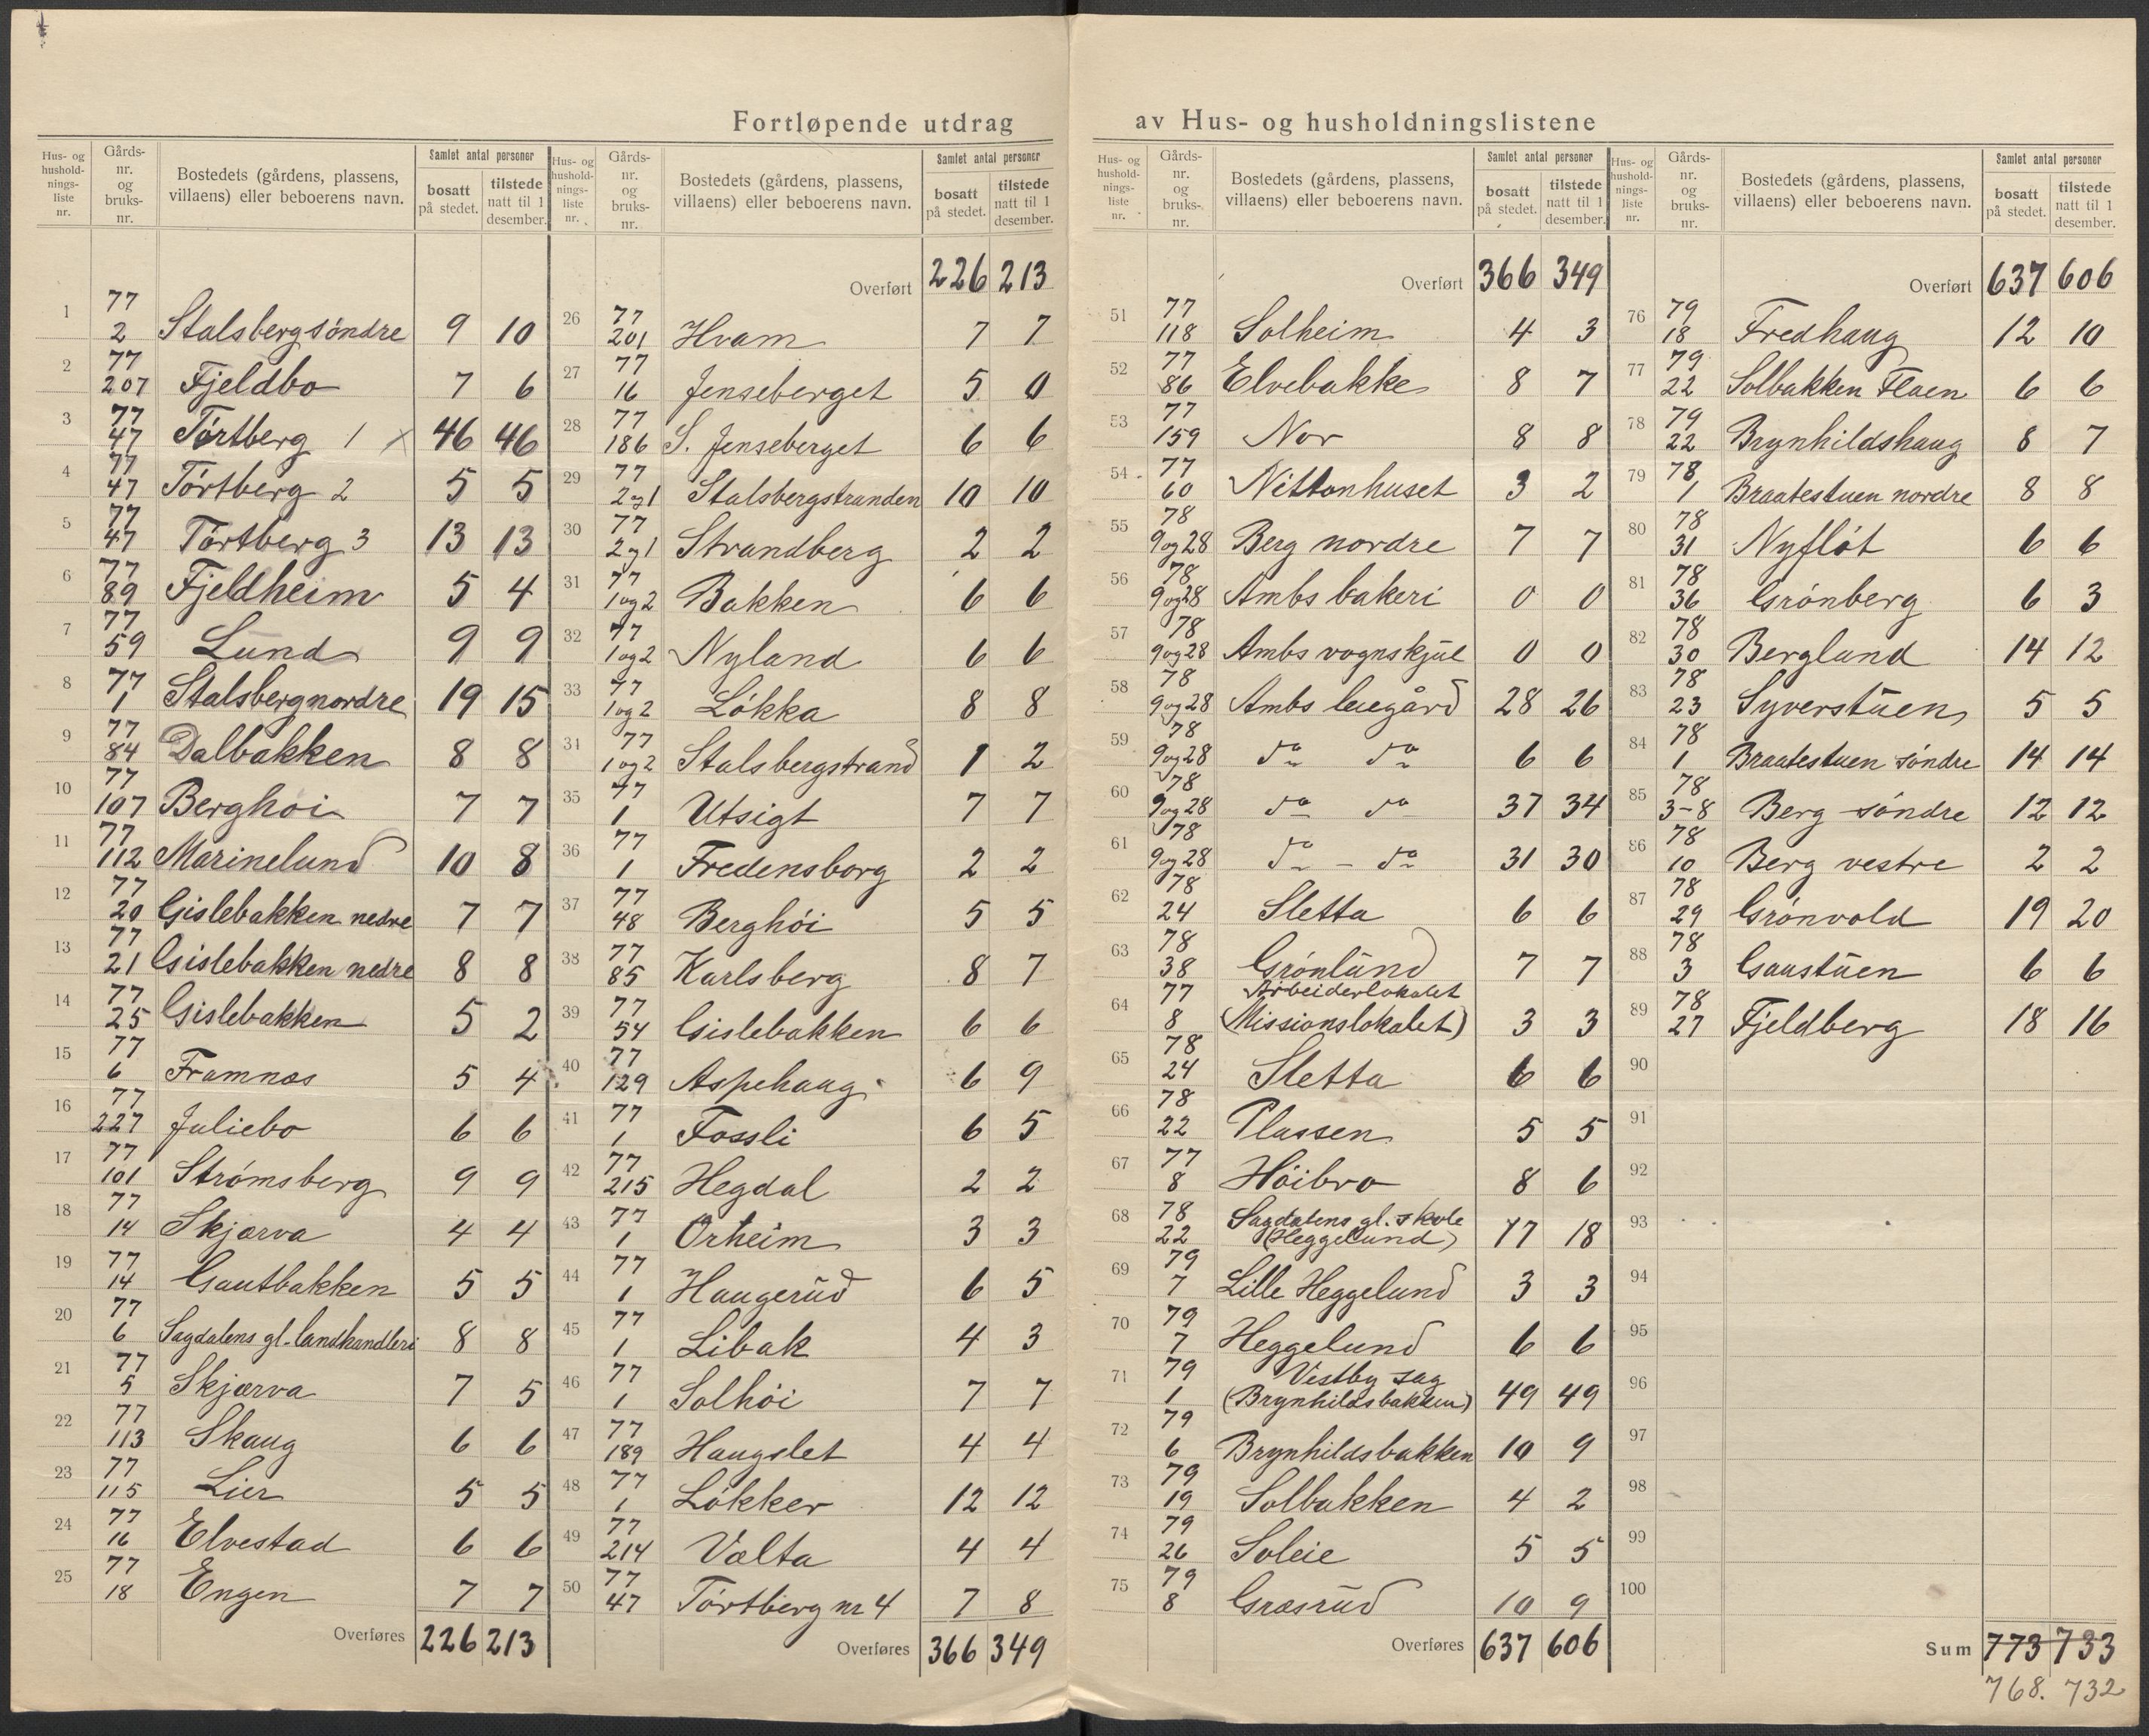 Fortløpende utdrag av Hus- og husholdningslistene
Hus- og hushold-nings-liste nr. | Gårds-nr. og bruks-nr. | Bostedets (gårdens, plassens, villaens) eller beboerens navn. | Samlet antal personer | bosatt på stedet. | tilstede natt til 1 desember.
1 77 2 Stalsberg söndre 9 10
2 77 207 Fjeldbo 7 6
3 77 47 Törtberg 1 x 46 46
4 77 47 Törtberg 2 5 5
5 77 47 Törtberg 3 13 13
6 77 89 Fjeldheim 5 4
7 77 59 Lund 9 9
8 77 1 Stalsberg nordre 19 15
9 77 84 Dalbakken 8 8
10 77 107 Berghoi 7 7
11 77 112 Marinelund 10 8
12 77 20 Gislebakken nedre 7 7
13 77 21 Gislebakken nedre 8 8
14 77 25 Gislebakken 5 2
15 77 6 Framnæs 5 4
16 77 227 Juliebo 6 6
17 77 101 Strömsberg 9 9
18 77 14 Skjærva 4 4
19 77 14 Gautbakken 5 5
20 77 6 Sagdalens gl. landhandleri 8 8
21 77 5 Skjærva 7 5
22 77 113 Skaug 6 6
23 77 115 Lier 5 5
24 77 16 Elvestad 6 6
25 77 18 Engen 7 7
Overføres 226 213
Hus- og hushold-nings-liste nr. | Gårds-nr. og bruks-nr. | Bostedets (gårdens, plassens, villaens) eller beboerens navn. | Samlet antal personer | bosatt på stedet. | tilstede natt til 1 desember.
Overført 226 213
26 77 201 Hvam 7 7
27 77 16 Jenseberget 5 0
28 77 186 S. Jenseberget 6 6
29 77 2og1 Stalsbergstranden 10 10
30 77 2og1 Strandberg 2 2
31 77 1og2 Bakken 6 6
32 77 1og2 Nyland 6 6
33 77 1og2 Lökka 8 8
34 77 1og2 Stalsbergstrand 1 2
35 77 1 Utsigt 7 7
36 77 1 Fredensborg 2 2
37 77 48 Berghöi 5 5
38 77 85 Karlsberg 8 7
39 77 54 Gislebakken 6 6
40 77 129 Aspehaug 6 9
41 77 1 Fossli 6 5
42 77 215 Hegdal 2 2
43 77 1 Orheim 3 3
44 77 1 Haugerud 6 5
45 77 1 Libak 4 3
46 77 1 Solhöi 7 7
47 77 189 Haugslet 4 4
48 77 1 Lökker 12 12
49 77 214 Vælta 4 4
50 77 47 Törtberg nr 4 7 8
Overføres 366 349
Hus- og hushold-nings-liste nr. | Gårds-nr. og bruks-nr. | Bostedets (gårdens, plassens, villaens) eller beboerens navn. | Samlet antal personer | bosatt på stedet. | tilstede natt til 1 desember.
Overført 366 349
51 77 118 Solheim 4 3
52 77 86 Elvebakke 8 7
53 77 159 Nor 8 8
54 77 60 Nittonhuset 3 2
55 78 9og28 Berg nordre 7 7
56 78 9og28 Ambs bakeri 0 0
57 78 9og28 Ambs vognskjul 0 0
58 78 9og28 Ambs leiegård 28 26
59 78 9og28 do do 6 6
60 78 9og28 do do 37 34
61 78 9og28 do - do 31 30
62 78 24 Sletta 6 6
63 78 38 Grönlund 7 7
64 77 8 Arbeiderlokalet
(Missionslokalet) 3 3
65 78 24 Sletta 6 6
66 78 22 Plassen 5 5
67 77 8 Höibro 8 6
68 78 22 Sagdalens gl. skole
(Heggelund) 17 18
69 79 7 Lille Heggelund 3 3
70 79 7 Heggelund 6 6
71 79 1 Vestby sag
(Brynhildsbakken) 49 49
72 79 6 Brynhildsbakken 10 9
73 79 19 Solbakken 4 2
74 79 26 Soleie 5 5
75 79 8 Græsrud 10 9
Overføres 637 606
Hus- og hushold-nings-liste nr. | Gårds-nr. og bruks-nr. | Bostedets (gårdens, plassens, villaens) eller beboerens navn. | Samlet antal personer | bosatt på stedet. | tilstede natt til 1 desember.
Overført 637 606
76 79 18 Fredhaug 12 10
77 79 22 Solbakken Flaen 6 6
78 79 22 Brynhildshaug 8 7
79 78 1 Braatestuen nordre 8 8
80 78 31 Nyflöt 6 6
81 78 36 Grönberg 6 3
82 78 30 Berglund 14 12
83 78 23 Syverstuen 5 5
84 78 1 Braatestuen söndre 14 14
85 78 3-8 Berg söndre 12 12
86 78 10 Berg vestre 2 2
87 78 29 Grönvold 19 20
88 78 3 Gaustuen 6 6
89 78 27 Fjeldberg 18 16
90
91
92
93
94
95
96
97
98
99
100
Sum 773 733
768. 732